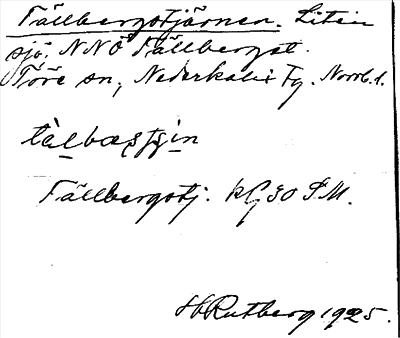 Tällbergstjärnen. Liten
sjö, NNÖ Tällberget.
Töre sn, Nederkalix Fg. Norrb. l.
Tällbergstj. kG, 30 S.M.
H Rutberg 1925.